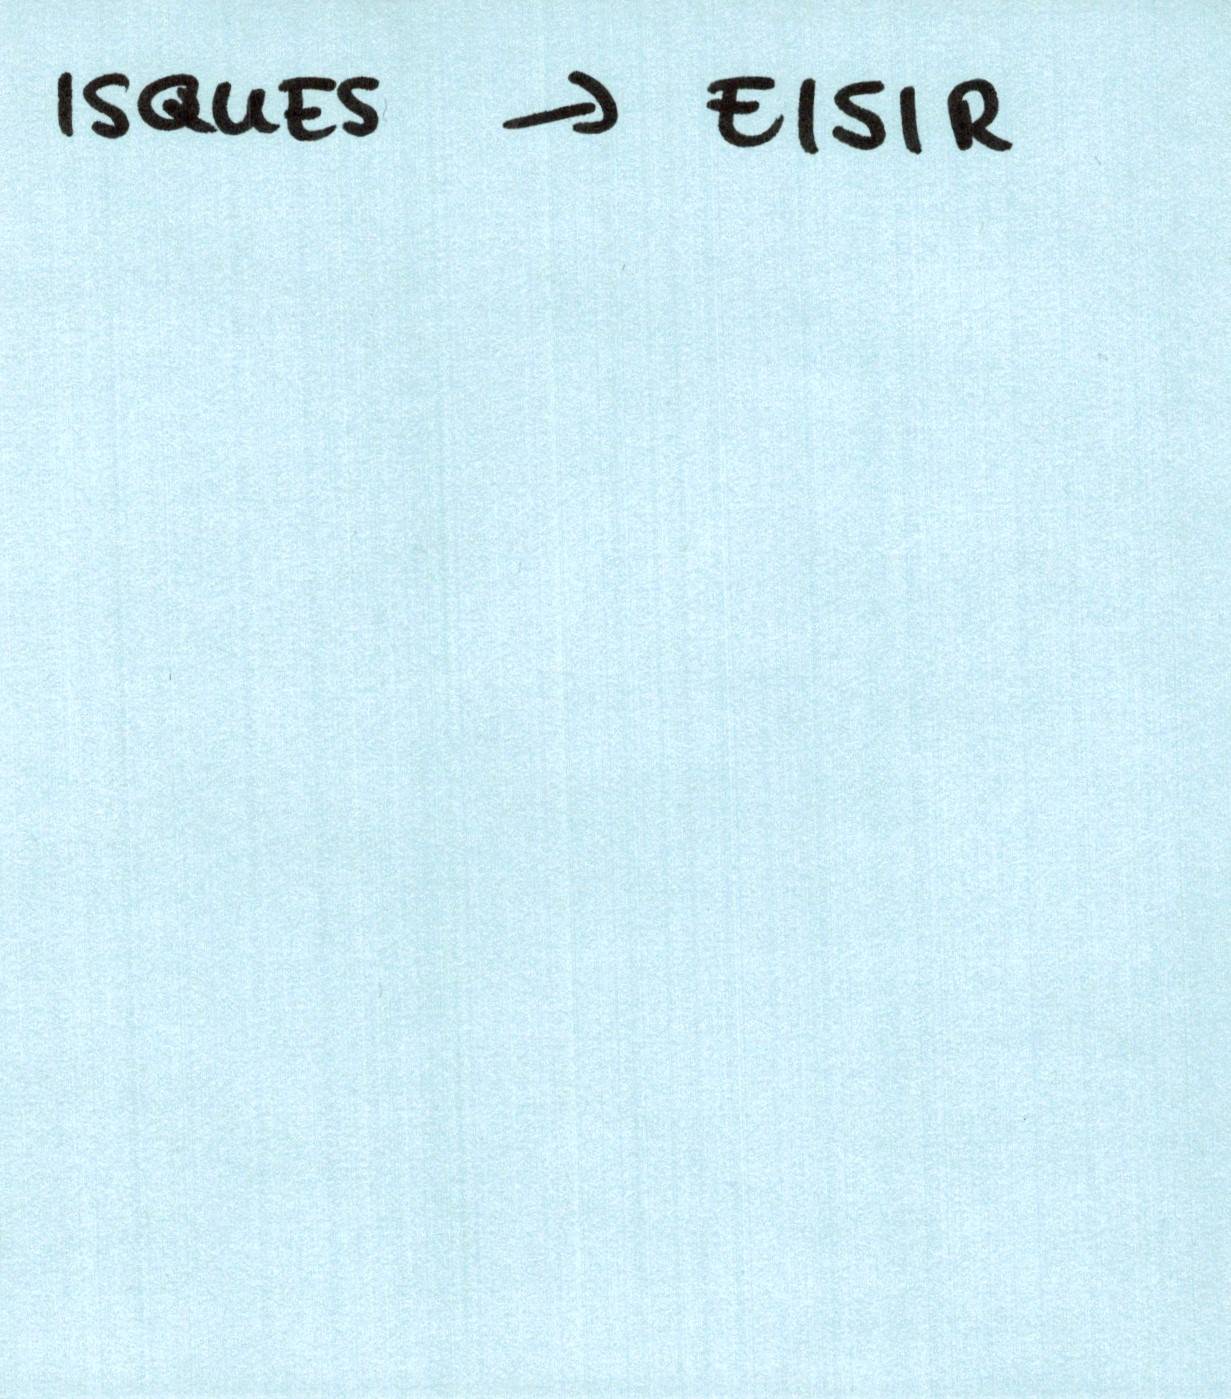 ISQUES → EISIR